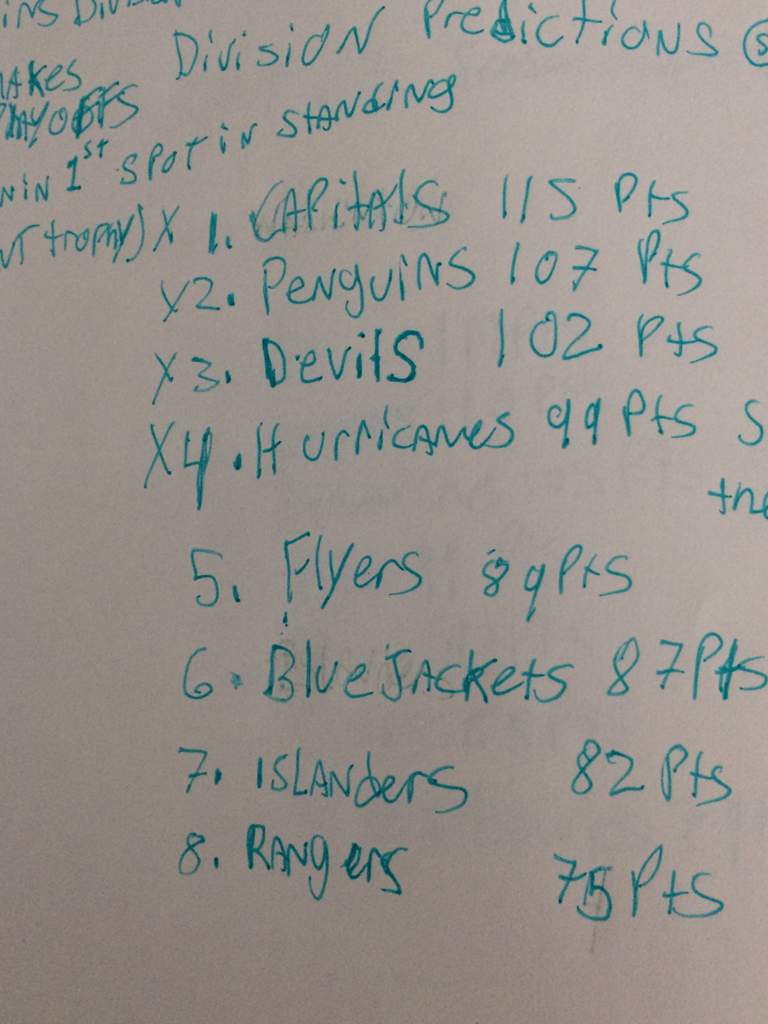 Division Predictions
makes
playoffs
win 1st spot in standings
trophy) X 1. Capitals 115 Pts
X2. Penguins 107 Pts
X3. Devils 102 Pts
X4. Hurricanes 99 Pts S
the
5. Flyers 89 Pts
6. BlueJackets 87 Pts
7. Islanders 82 Pts
8. Rangers 75 Pts